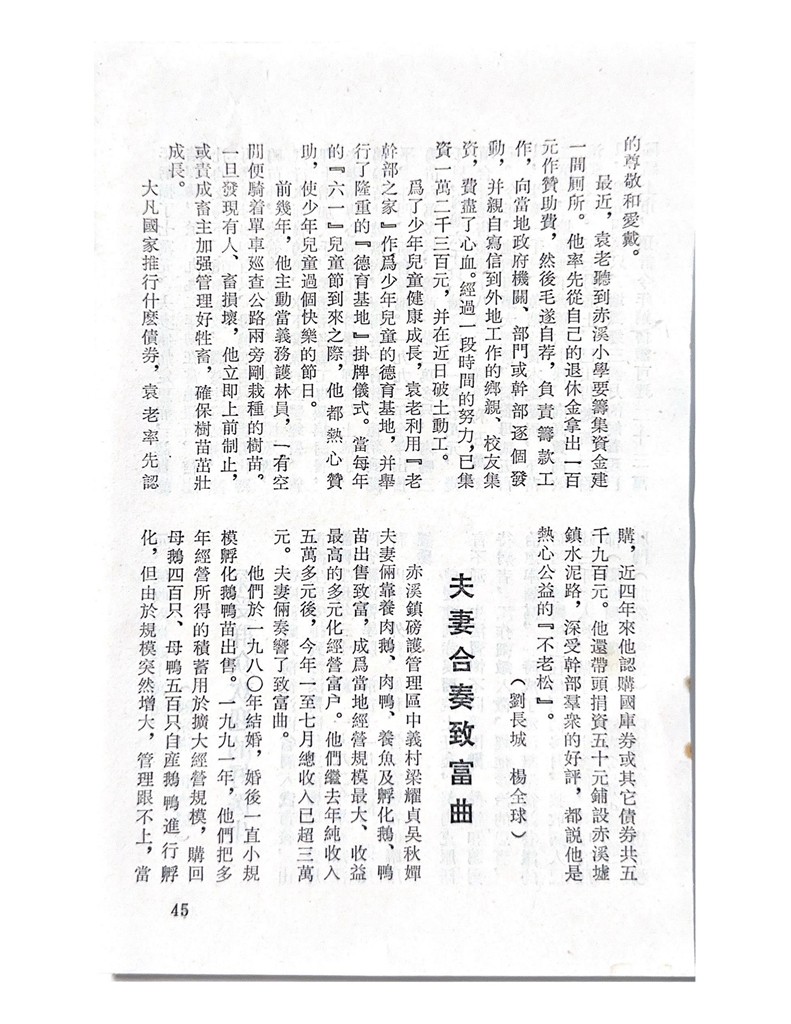 的尊敬和愛戴。
最近，袁老聽到赤溪小學要籌集資金建
一間厠所。他率先從自己的退休金拿出一百
元作贊助費，然後毛遂自荐，負責籌款工
作，向當地政府機關、部門或幹部逐個發
動，并親自寫信到外地工作的鄉親、校友集
資，費盡了心血。經過一段時間的努力，已集
資一萬二千三百元，并在近日破土動工。
爲了少年兒童健康成長，袁老利用『老
幹部之家』作爲少年兒童的德育基地，并舉
行了隆重的『德育基地』掛牌儀式。當每年
的『六一』兒童節到來之際，他都熱心贊
助，使少年兒童過個快樂的節日。
前幾年，他主動當義務護林員，一有空
閒便騎着單車巡查公路兩旁剛栽種的樹苗。
一旦發現有人、畜損壞，他立即上前制止，
或責成畜主加强管理好牲畜，確保樹苗茁壯
成長。
大凡國家推行什麽債券，袁老率先認
購，近四年來他認購國庫券或其它債券共五
千九百元。他還帶頭捐資五十元鋪設赤溪墟
鎮水泥路，深受幹部羣衆的好評，都說他是
熱心公益的『不老松』。
（劉長城　楊全球）
夫妻合奏致富曲
赤溪鎮磅護管理區中義村梁耀貞吳秋嬋
夫妻倆靠養肉鵝、肉鴨、養魚及孵化鵝、鴨
苗出售致富，成爲當地經營規模最大、收益
最高的多元化經營富户。他們繼去年純收入
五萬多元後，今年一至七月總收入已超三萬
元。夫妻倆奏響了致富曲。
他們於一九八〇年結婚，婚後一直小規
模孵化鵝鴨苗出售。一九九一年，他們把多
年經營所得的積蓄用於擴大經營規模，購回
母鵝四百只、母鴨五百只自産鵝鴨進行孵
化，但由於規模突然增大，管理跟不上，當
45